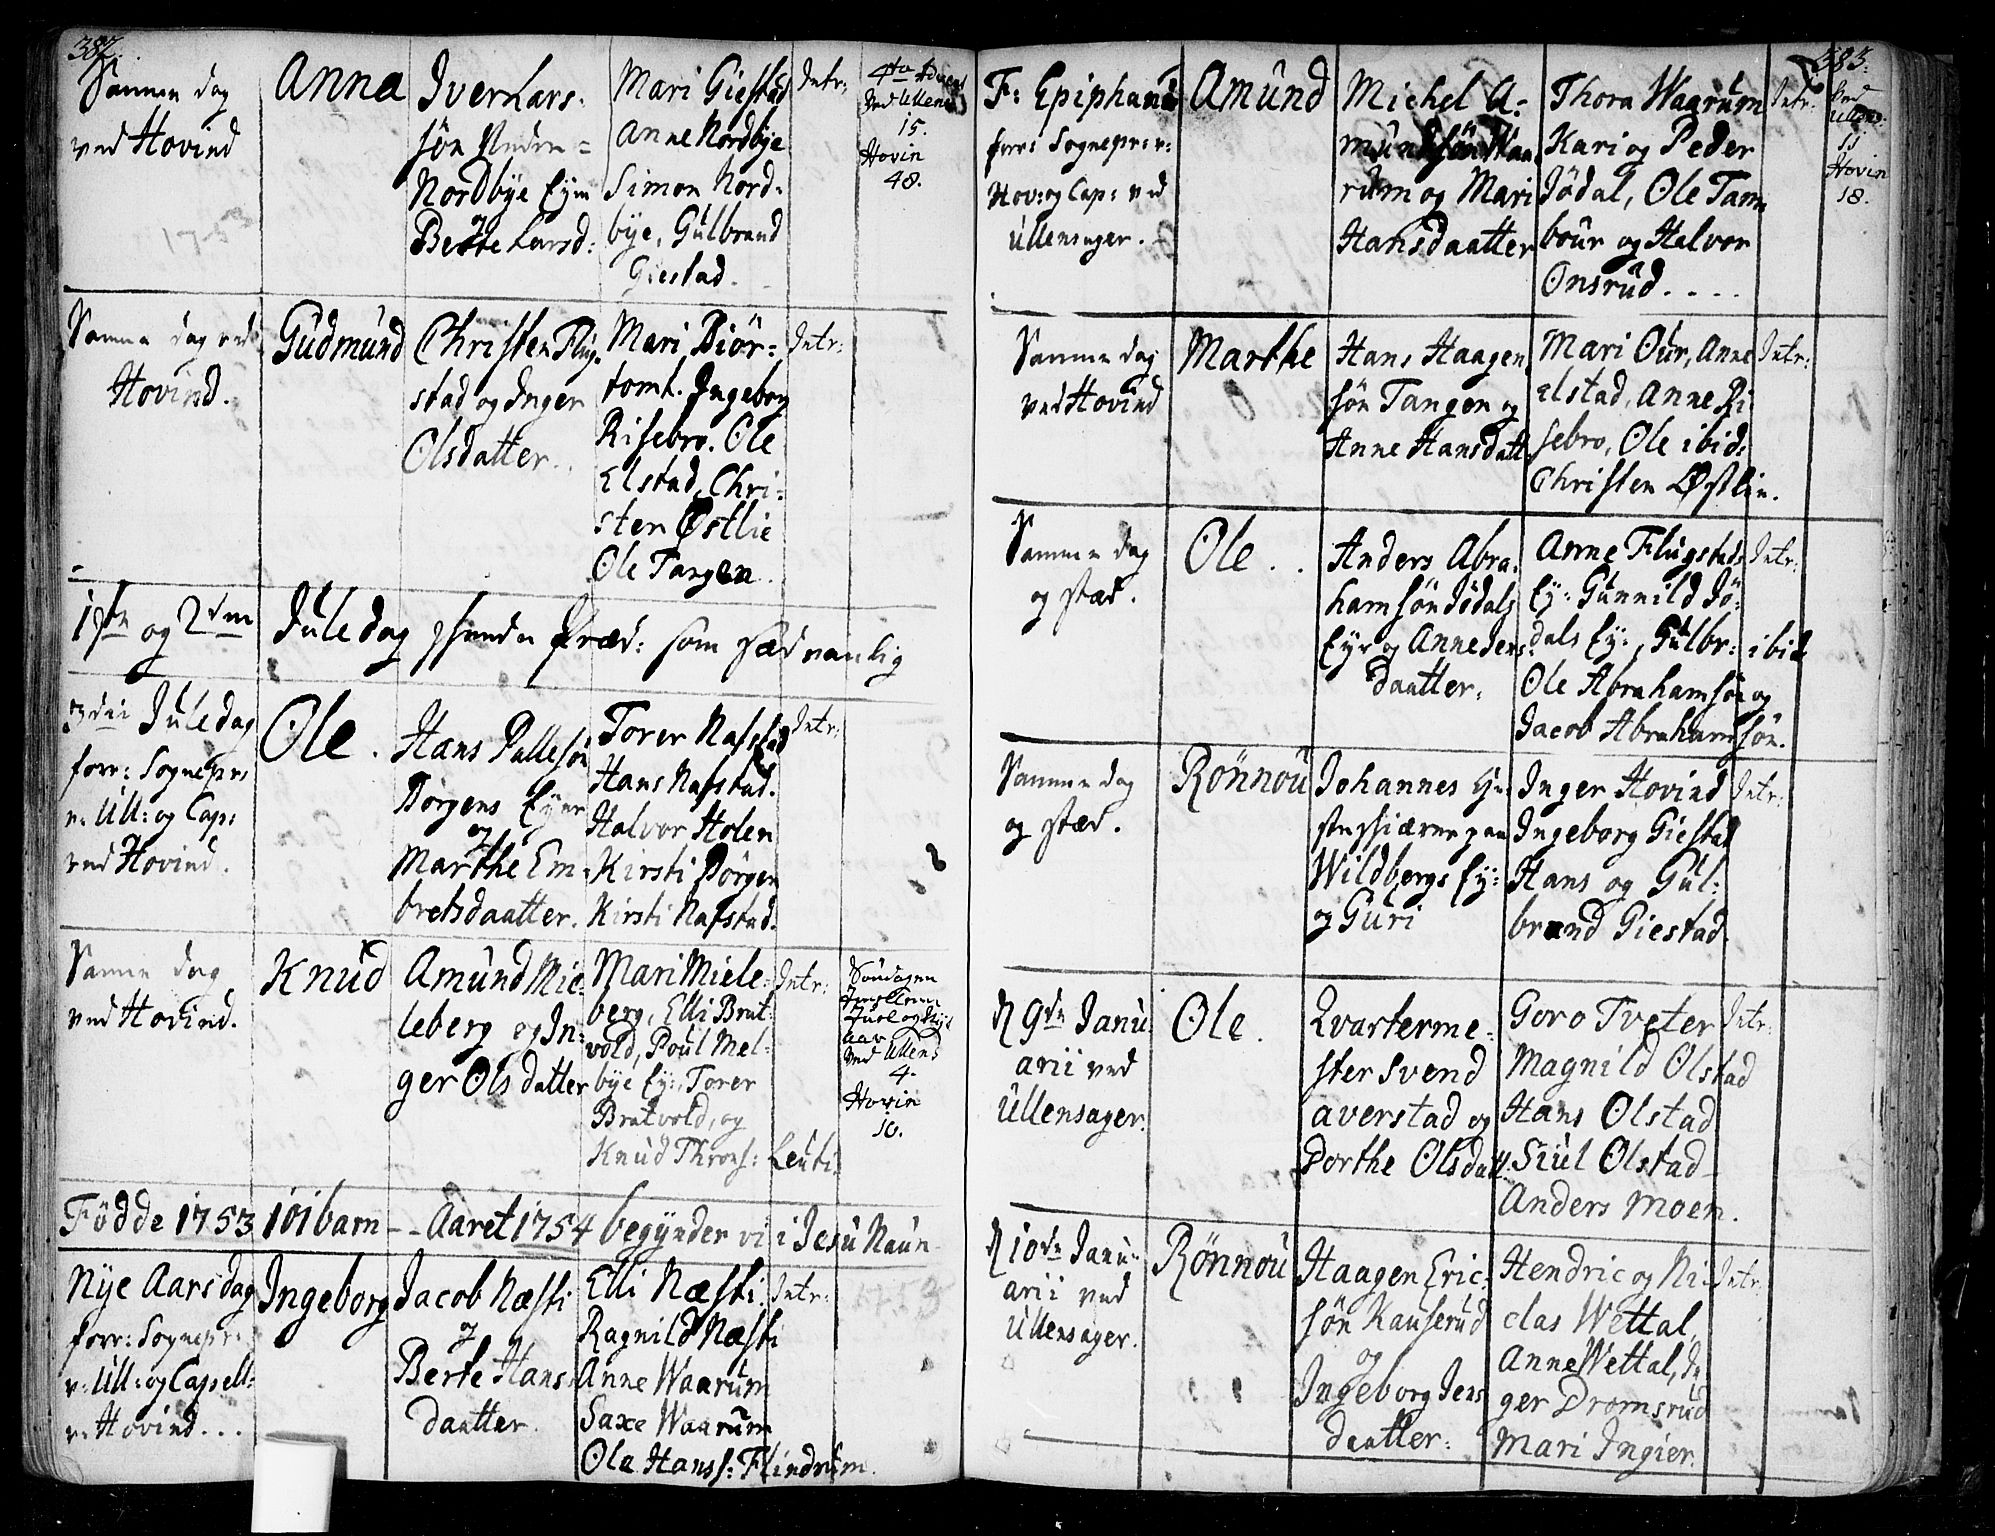 382.
Samme dag
ved Hovind
Anna
Iver Lars-
sön Nedre=
Nordbye Eyer
og
Berte Larsd:
Mari Giestad
Anne Nordbye
Simon Nord-
bye, Gulbrand
Giestad.
Intr:
4de Advent
ved Ullens
15.
Hovin
48.
Samme dag ved
Hovind.
Gudmund
Christen Flug-
stad og Inger
Olsdatter.
Mari Biör-
tomt. Ingeborg
Risebro. Ole
Elstad, Chri-
sten Østlie
Ole Tangen.
Intr:
1ste og 2den Juledag præd: som sædvanlig
3die Juledag
forr: Sognepr:
v: Ull: og Cap:
ved Hovind.
Ole.
Hans Pallesön
Börgens Eyer
og
Marthe Em-
bretsdaatter.
Torer Nafstad
Hans Nafstad.
Halvor Holen
Kirsti Börgen
Kirsti Nafstad.
Intr:
Samme dag
ved Hovind.
Knud
Amund Mie-
leberg og In-
ger Olsdatter
Mari Miele-
berg, Elli Brat-
vold, Poul Mel-
bye Ey: Torer
Bratvold, og
Knud Throns: Leuti
Intr:
Söndagen
Juul og Nyt
aar
ved Ullens
4.
Hovin
10.
Födde 1753 101 barn - - Aaret 1754 begynder vi i Jesu Naun
Nye Aarsdag
forr: Sognepr:
v: Ull: og Capell:
v: Hovind...
Ingeborg
Jacob Næsti
og
Berte Hans-
daatter.
Elli Næsti.
Ragnild Næsti
Anne Waarum
Saxe Waarum
Ole Hanss: Flindrum.
Intr:
383.
F: Epiphanie
forr: Sognepr: v:
Hov: og Cap: ved
Ullensager.
Amund
Michel A-
mundsön Waa-
rum og Mari
Hansdaatter
Thora Waarum
Kari og Peder
Jödal, Ole Tam
bour og Halvor
Onsrud....
Intr:
ved
Ullens:
11
Hovin
18.
Samme dag
ved Hovind
Marthe
Hans Haagen
sön Tangen og
Anne Hansdatt
Mari Our, Anne
Elstad, Anne Ri
sebro, Ole ibid:
Christen Østlin.
Intr:
Samme dag
og stæd.
Ole..
Anders Abra-
hamsön Jödals
Eyr og Anne Jens-
daatter.
Anne Flugstads
Ey: Gunnild Jö-
dals Ey:, Gulbr: ibid
Ole Abrahamsön og
Jacob Abrahamsön.
Intr:
Samme dag
og stæd.
Rönnou
Johannes
Wildbergs Ey:
og Guri
Inger Hovind
Ingeborg Giestad
Hans og Gul-
brand Giestad.
Intr:
d 9de Janu-
arii ved
Ullensager.
Ole.
Qvarterme-
ster Svend
averstad og
Dorthe Olsdatt.
Goro Tveter
Magnild Olstad
Hans Olstad
Siul Olstad
Anders Moen.
Intr:
d 10de Janu-
arii ved
Ullensager.
Rönnou
Haagen Eric-
sön Kauserud
og
Ingeborg Jens
daatter.
Hendric og Ni-
clas Wettal,
Anne Wettal, In
ger Dromsrud
Mari Ingier.
Intr: